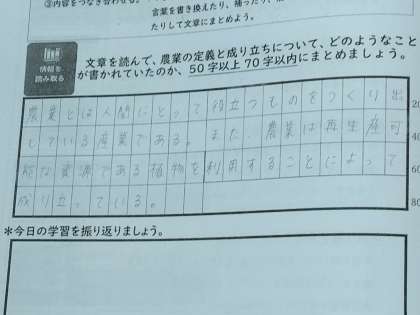 ③内容をつなぎ合わせる。
言葉を書き換えたり、補ったり、
たりして文章にまとめよう。
情報を
読み取る
文章を読んで、農業の定義と成り立ちについて、どのようなこと
が書かれていたのか、50字以上70字以内にまとめましょう。
農業とは人間にとって役立つものをつくり出 20
している産業である。また、農業は再生産可 40
能な資源である植物を利用することによって 60
成り立っている。 80
＊今日の学習を振り返りましょう。